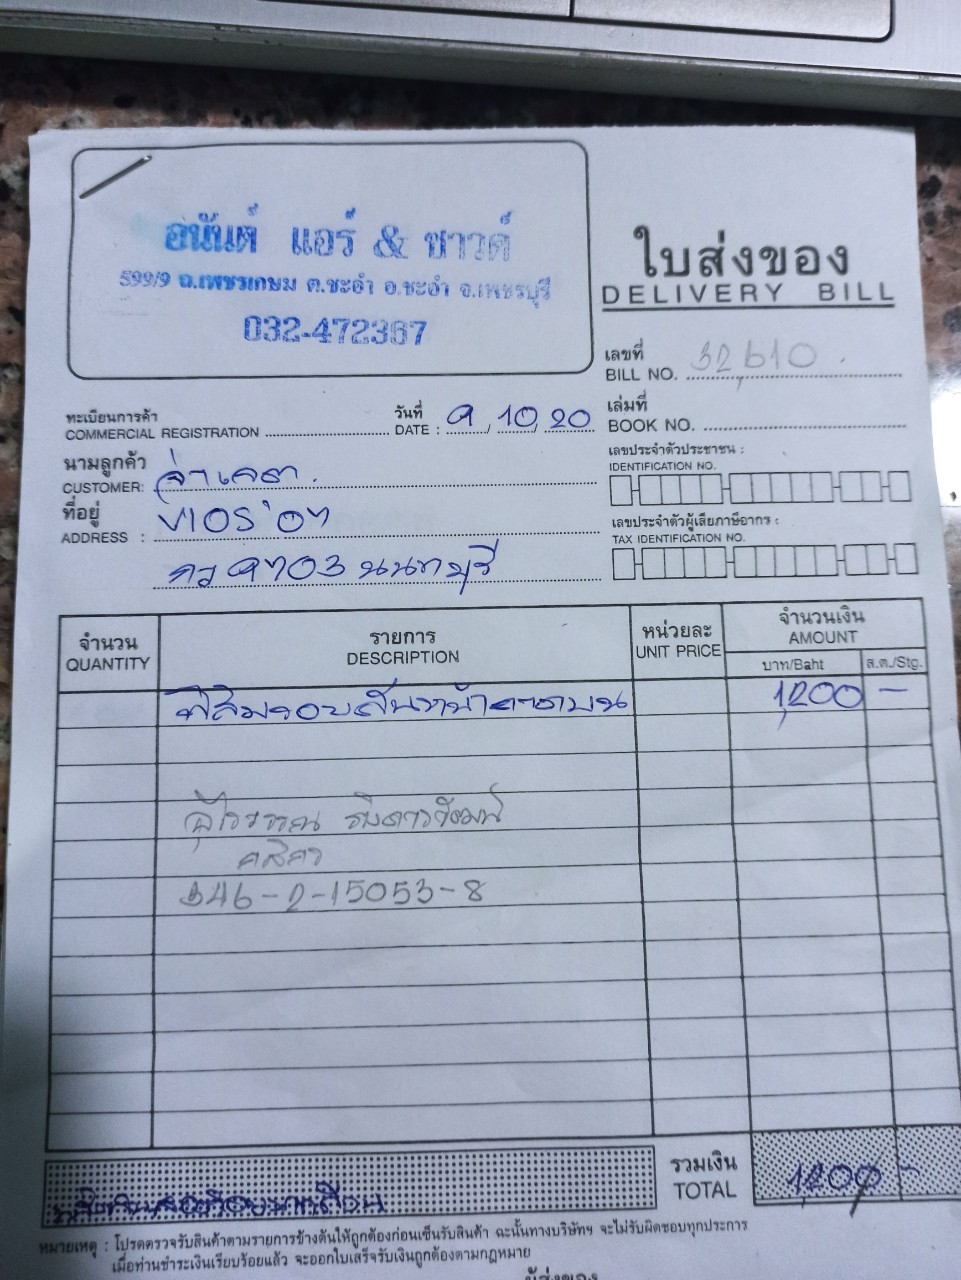 อนันต์ แอร์ & ซาวด์
599/9 ถ.เพชรเกษม ต.ชะอำ อ.ชะอำ จ.เพชรบุรี
032-472367
ใบส่งของ
DELIVERY BILL
เลขที่
BILL NO. 32,610
ทะเบียนการค้า
COMMERCIAL REGISTRATION
วันที่
DATE : 9 / 10 / 20
เล่มที่
BOOK NO.
นามลูกค้า
CUSTOMER:
เลขประจำตัวประชาชน :
IDENTIFICATION NO.
ที่อยู่
ADDRESS : VIOS
เลขประจำตัวผู้เสียภาษีอากร :
TAX IDENTIFICATION NO.
นนทบุรี
จำนวน
QUANTITY
รายการ
DESCRIPTION
หน่วยละ
UNIT PRICE
จำนวนเงิน
AMOUNT
บาท/Baht
ส.ต./Stg.
ฟิล์มรอบคันหน้าคาดบน 1,200 -
346-2-15053-8
รวมเงิน
TOTAL 1,200 -
หนึ่งพันสองร้อยบาทถ้วน
หมายเหตุ : โปรดตรวจรับสินค้าตามรายการข้างต้นให้ถูกต้องก่อนเซ็นรับสินค้า ฉะนั้นทางบริษัทฯ จะไม่รับผิดชอบทุกประการ
เมื่อท่านชำระเงินเรียบร้อยแล้ว จะออกใบเสร็จรับเงินถูกต้องตามกฎหมาย
ผู้ส่งของ